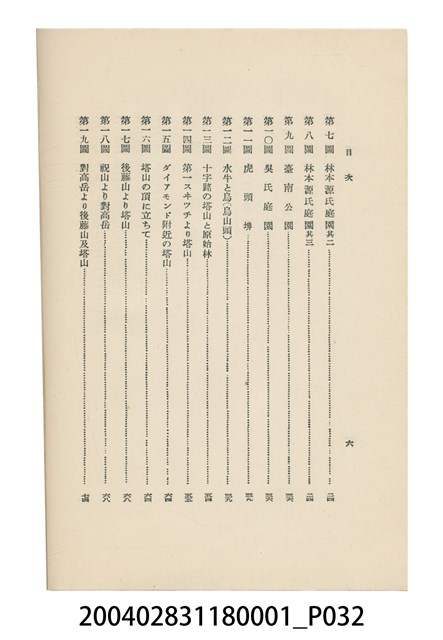 目次
六
第七圖 林本源氏庭園其二
第八圖 林本源氏庭園其三
第九圖 臺南公園
第一〇圖 吳氏庭園
第一一圖 虎頭埤
第一二圖 水牛と烏(烏山頭)
第一三圖 十字路の塔山と原始林
第一四圖 第一スヰツチより塔山
第一五圖 ダイアモンド附近の塔山
第一六圖 塔山の頂に立ちて 六四
第一七圖 後藤山より塔山 六八
第一八圖 祝山より對高岳 六八
第一九圖 對高岳より後藤山及塔山 七四
200402831180001_P032